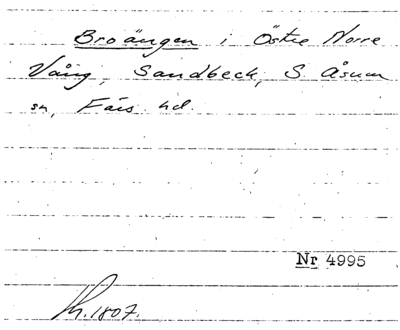 Broängen i Östre Norre
Vång, Sandbeck, S. Åsum
sn, Färs hd.
Nr 4995
Kh. 1807.